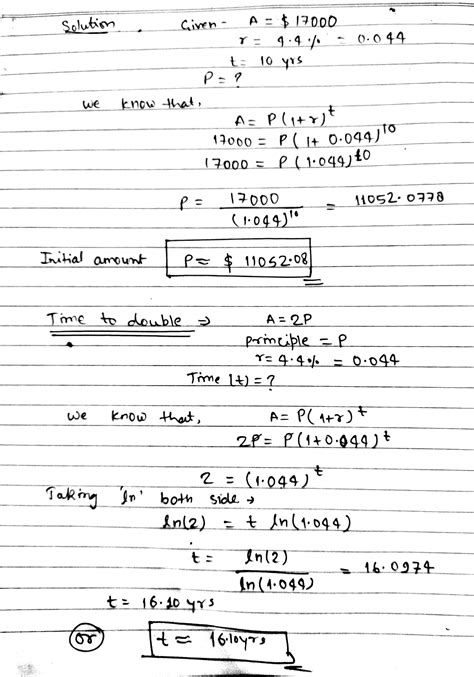 Solution. Given - A = $17000
r = 4.4% = 0.044
t = 10 yrs
P = ?
we know that,
A = P(1+r)^t
17000 = P(1+ 0.044)^10
17000 = P(1.044)^10
P = 17000 / (1.044)^10 = 11052.0778
Initial amount P ≈ $ 11052.08
Time to double ⇒ A = 2P
principle = P
r = 4.4% = 0.044
Time (t) = ?
we know that, A = P(1+r)^t
2P = P(1+0.044)^t
2 = (1.044)^t
Taking 'ln' both side →
ln(2) = t ln(1.044)
t = ln(2) / ln(1.044) = 16.0974
t = 16.10 yrs
or t ≈ 16.10yrs